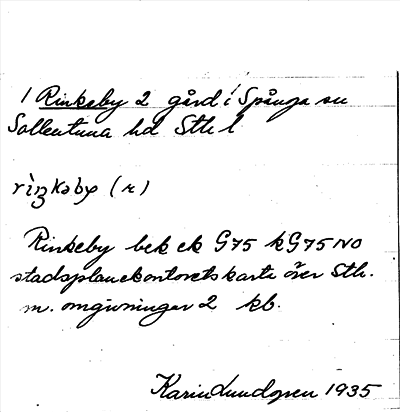 1 Rinkeby 2 gård i Spånga sn
Sollentuna hd Sthl l
rìŋkəby (r)
Rinkeby bek ek G75 kG75NO
stadsplanekontorets karta över Sth.
m. omgivningar 2 kb.
Karin Lundgren 1935